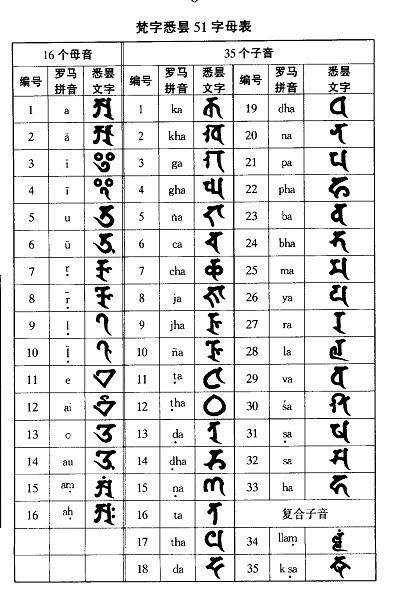 梵字悉昙 51 字母表
16 个母音 35 个子音
编号 罗马拼音 悉昙文字 编号 罗马拼音 悉昙文字 编号 罗马拼音 悉昙文字
1 a 𑖀 1 ka 𑖎 19 dha 𑖠
2 ā 𑖁 2 kha 𑖏 20 na 𑖡
3 i 𑖂 3 ga 𑖐 21 pa 𑖢
4 ī 𑖃 4 gha 𑖑 22 pha 𑖣
5 u 𑖄 5 ṅa 𑖒 23 ba 𑖤
6 ū 𑖅 6 ca 𑖓 24 bha 𑖥
7 ṛ 𑖆 7 cha 𑖔 25 ma 𑖦
8 ṝ 𑖇 8 ja 𑖕 26 ya 𑖧
9 ḷ 𑖈 9 jha 𑖖 27 ra 𑖨
10 ḹ 𑖉 10 ña 𑖗 28 la 𑖩
11 e 𑖊 11 ṭa 𑖘 29 va 𑖪
12 ai 𑖋 12 ṭha 𑖙 30 śa 𑖫
13 o 𑖌 13 ḍa 𑖚 31 ṣa 𑖬
14 au 𑖍 14 ḍha 𑖛 32 sa 𑖭
15 aṃ 𑖀𑖽 15 ṇa 𑖜 33 ha 𑖮
16 aḥ 𑖀𑖾 16 ta 𑖝 复合子音
17 tha 𑖞 34 llaṃ 𑖩𑖿𑖩𑖽
18 da 𑖟 35 kṣa 𑖎𑖿𑖬